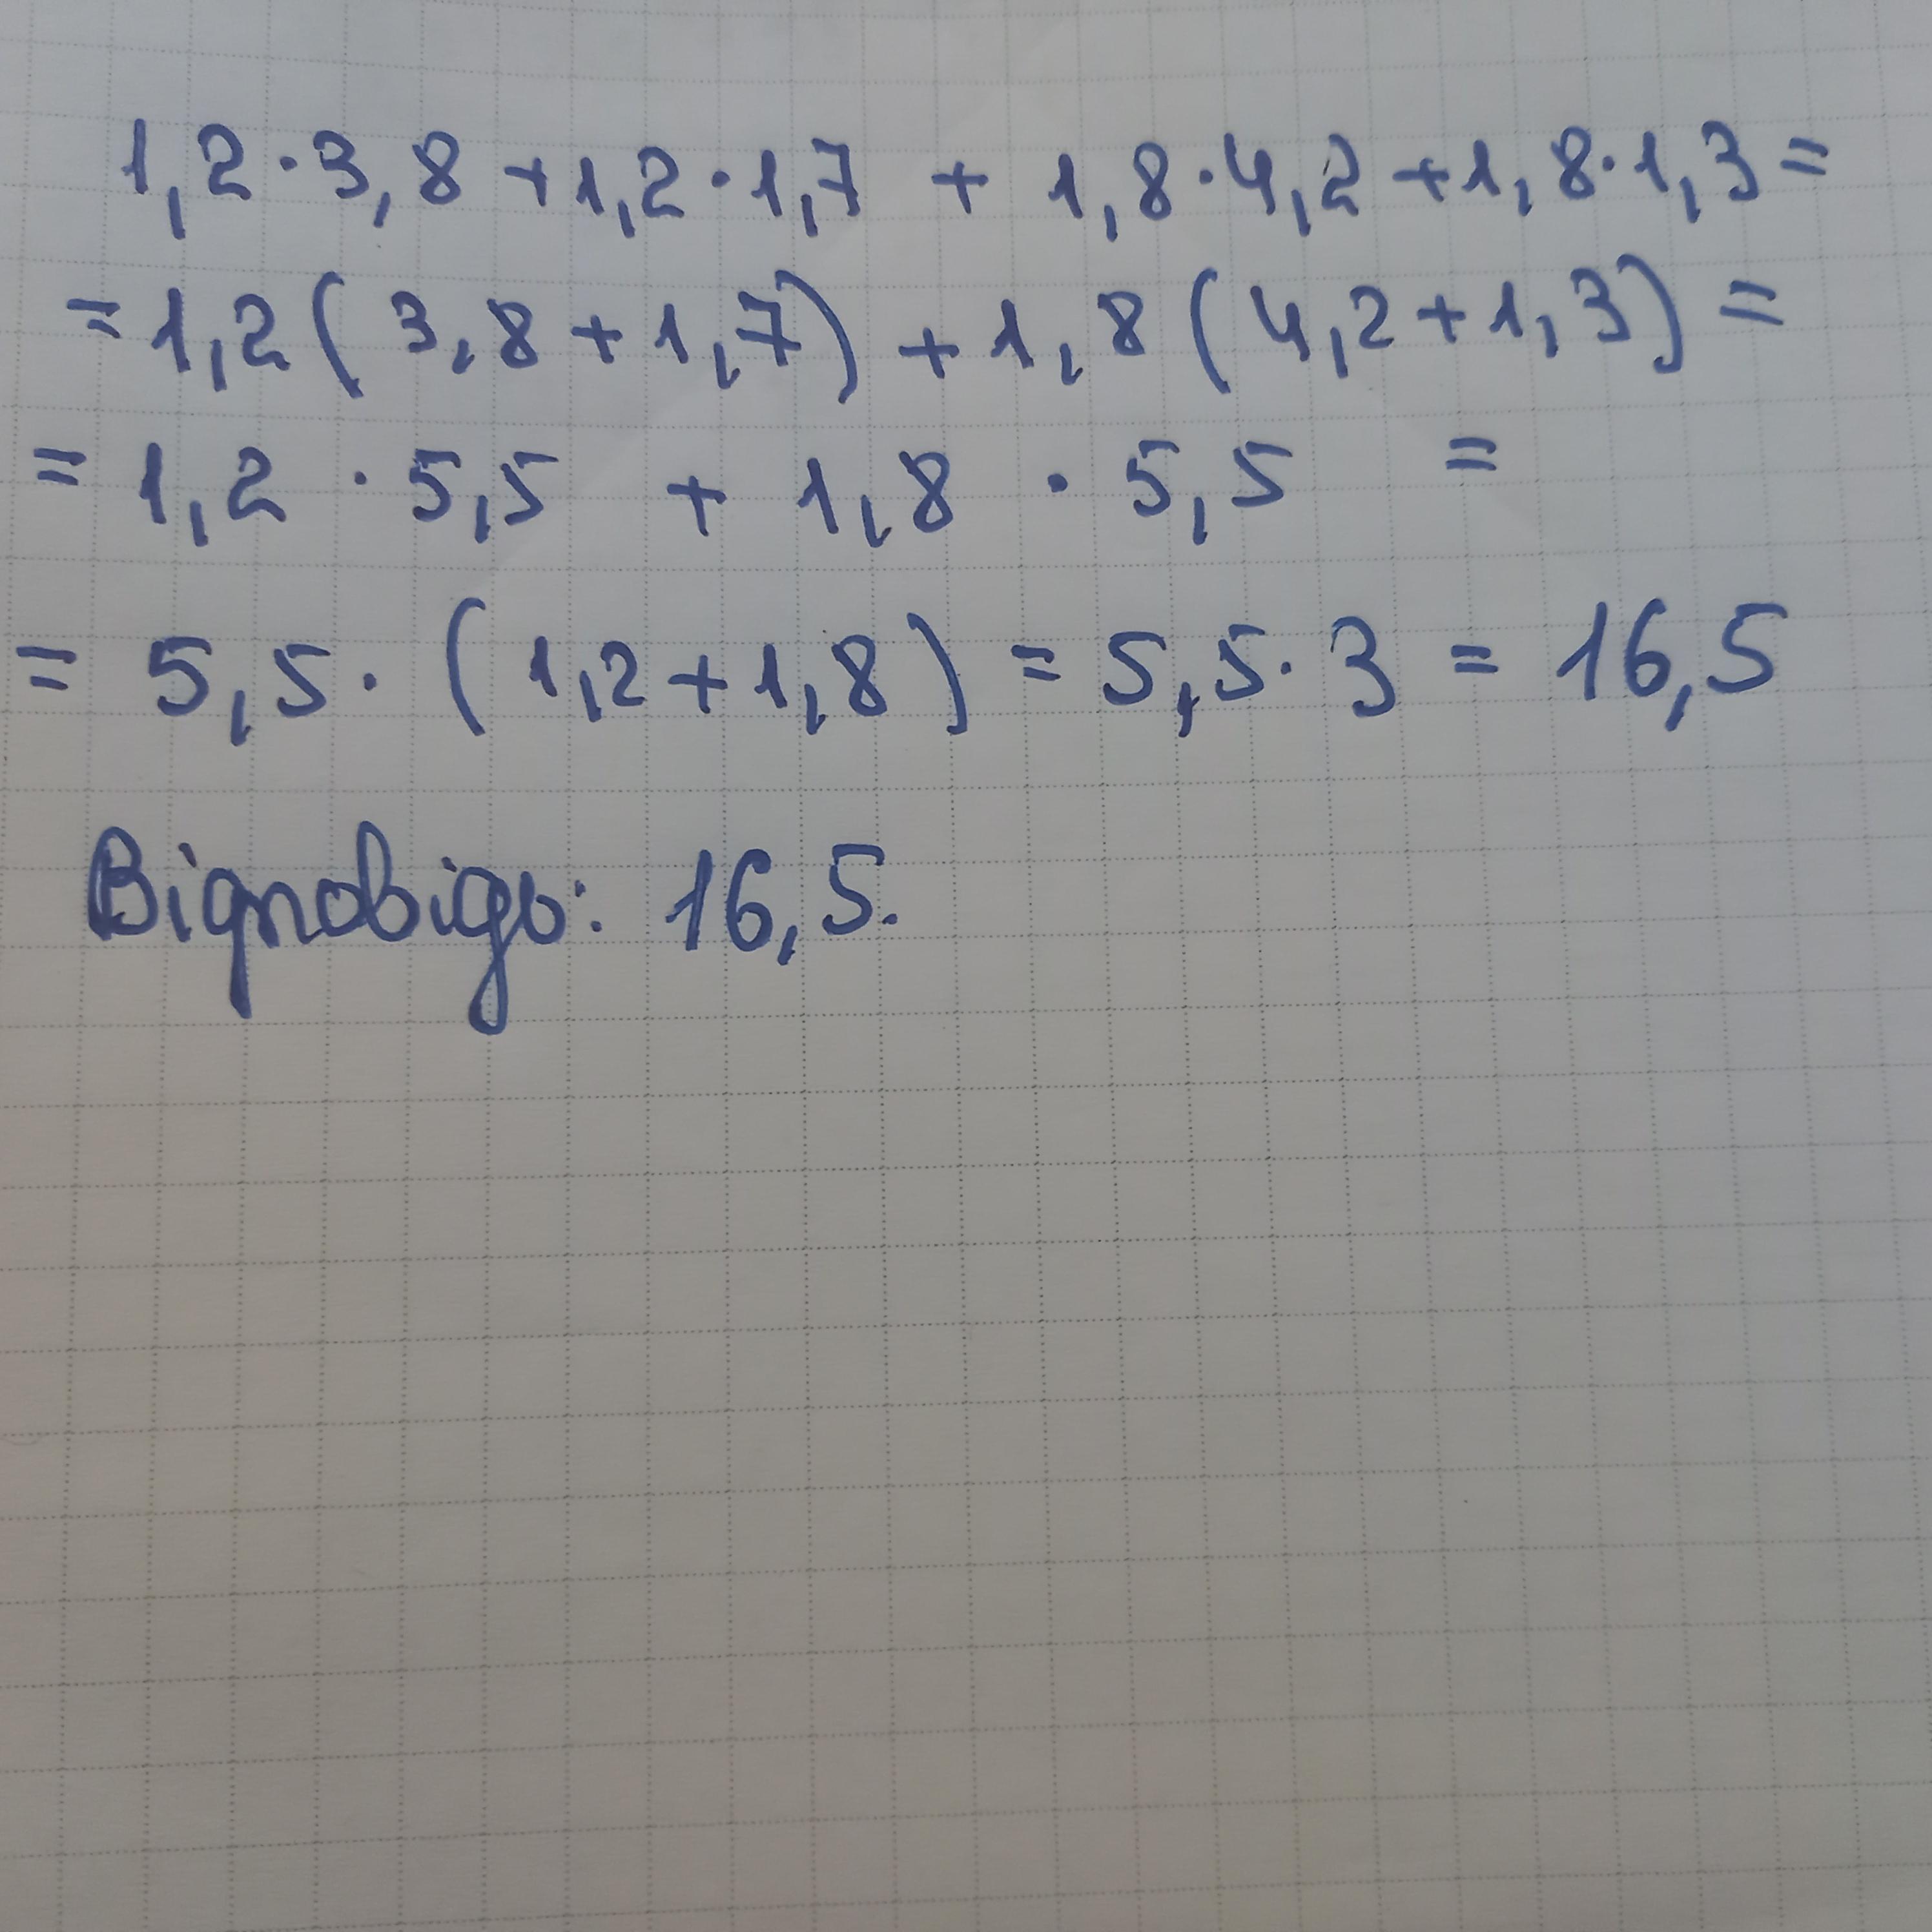 1,2·3,8+1,2·1,7 + 1,8·4,2+1,8·1,3=
=1,2(3,8+1,7)+1,8(4,2+1,3)=
=1,2·5,5 + 1,8·5,5 =
= 5,5·(1,2+1,8)=5,5·3=16,5
Відповідь: 16,5.